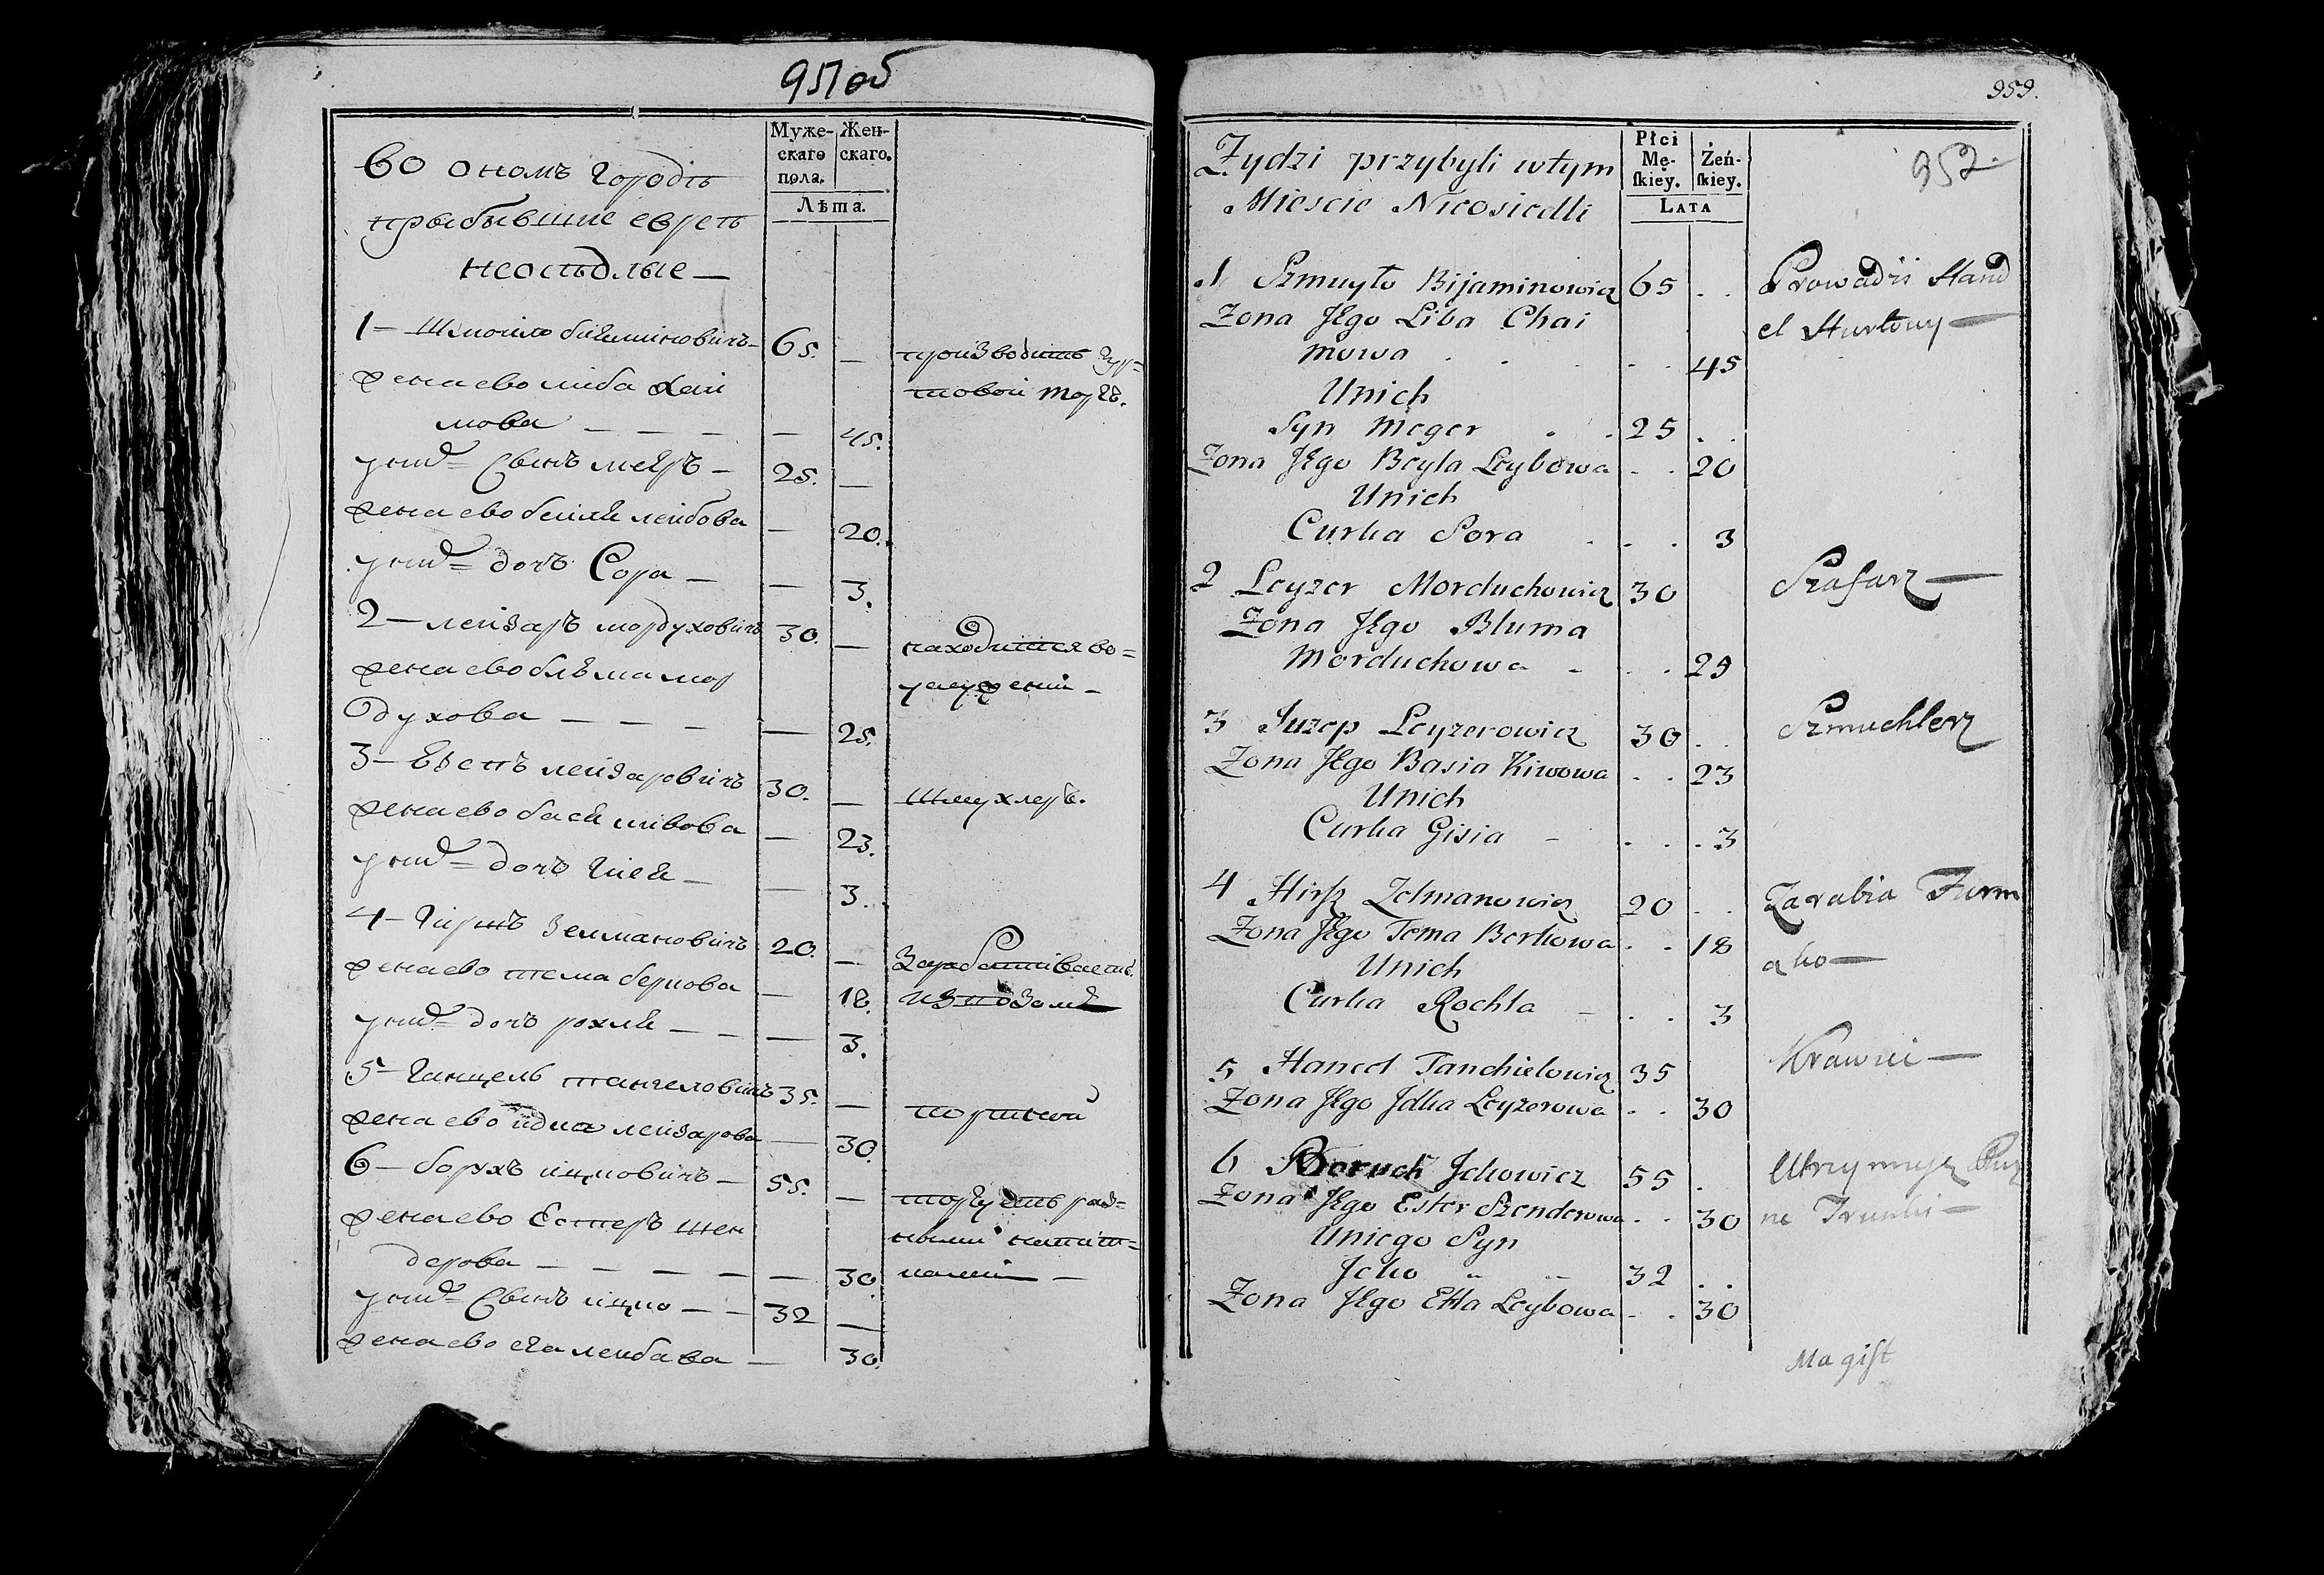 957об
Муже-
скаго
пола.
Жен-
скаго.
Лѣта.
во ономъ городѣ
прыбывшие евреѣ
неосѣдлые —
1 — Шмойло биеминовичъ — 65. —
производитъ гур=
товой торгъ.
жена ево либа хаи
мова — — — — 45.
у нихъ = Сынъ меерь — 25. —
жена ево беиля леибова — 20.
у нихъ = дочъ Сора — — 3.
2 — леизаръ мордуховичъ 30. —
находится во=
услужении —
жена ево блюма мор
духова — — — — 25.
3 — леизаровичъ 30. —
шмухлеръ.
жена ево бася кивова — 23.
у нихъ = дочъ гися — — 3.
4 — Гиршъ Зелмановичъ 20. —
зарабативаетъ
извозомъ
жена ево тема беркова — 18.
у нихъ = дочъ рохля — — — 3.
5 — Ганцель танхеловичъ 35. —
портной
жена ево идка леизарова — 30.
6 — борухъ ицковичъ — 55. —
торгуетъ раз=
ными напит=
ками —
жена ево Естеръ шен
дерова — — — — — 30.
у нихъ = Сынъ ицко — — 32 —
жена ево ета леибава — 30.
959.
952.
Płci
Mę-
ſkiey.
Żeń-
ſkiey.
LATA
Zydzi przybyli wtym
Miescie Nieosiedli
1 Szmuyło Bijaminowicz 65 . .
Prowadzi Hand
el Hurtowy —
Zona Jego Liba Chai
mowa . . . . 45
Unich
Syn Meger . . 25 . .
Zona Jego Beyla Leybowa . . 20
Unich
Curka Sora . . . 3
2 Leyzer Morduchowicz 30
Szafarz —
Zona Jego Bluma
Morduchowa - . . 29
3 Juzep Leyzerowicz 30 . .
Szmuchlerz
Zona Jego Basia Kiwowa . . 23
Unich
Curka Gisia - . . . 3
4 Hirſz Zelmanowicz 20 . .
Zarabia Furm
anko —
Zona Jego Tema Berkowa . . 18
Unich
Curka Rochla - . . 3
5 Hancel Tanchielowicz 35
Krawiec —
Zona Jego Jdka Leyzerowa . . 30
6 Boruch Jckowicz 55 .
Utrzymuje
ne Trunki —
Zona Jego Ester Szenderowa . . 30
Uniego Syn
Jcko " - 32 . .
Zona Jego Etta Leybowa . . 30
Magiſt